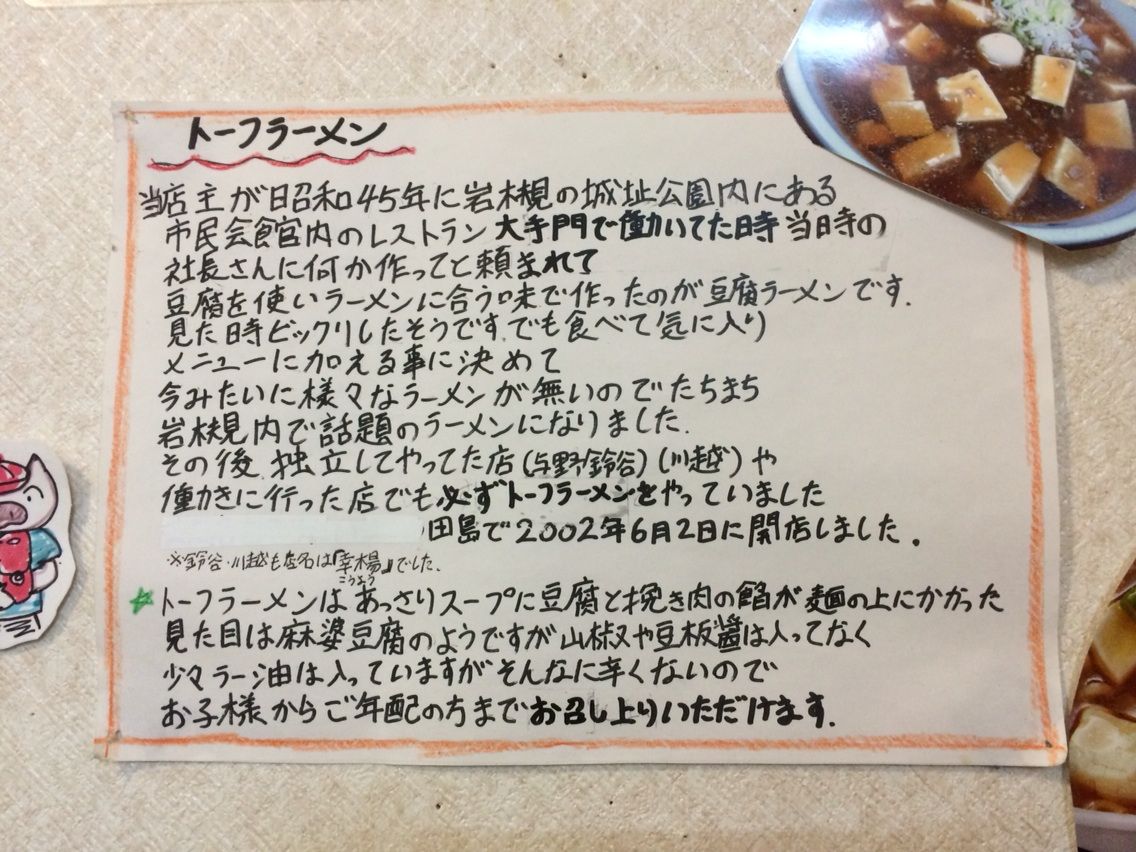 トーフラーメン
当店主が日昭和45年に岩槻の城址公園内にある
市民会館内のレストラン大手門で働いてた時当時の
社長さんに何か作ってと頼まれて
豆腐を使いラーメンに合う味で作ったのが豆腐ラーメンです.
見た時ビックリしたそうです.でも食べて気に入り
メニューに加える事に決めて
今みたいに様々なラーメンが無いのでたちまち
岩槻内で話題のラーメンになりました.
その後 独立してやってた店(与野鈴谷)(川越)や
働きに行った店でも必ずトーフラーメンをやっていました
田島で2002年6月2日に開店しました。
※鈴谷・川越も店名は「幸楊」でした.
こうよう
☆トーフラーメンはあっさりスープに豆腐と挽き肉の餡が麺の上にかかった
見た目は麻婆豆腐のようですが山椒や豆板醤は入ってなく
少々ラー油は入っていますがそんなに辛くないので
お子様からご年配の方までお召し上りいただけます.